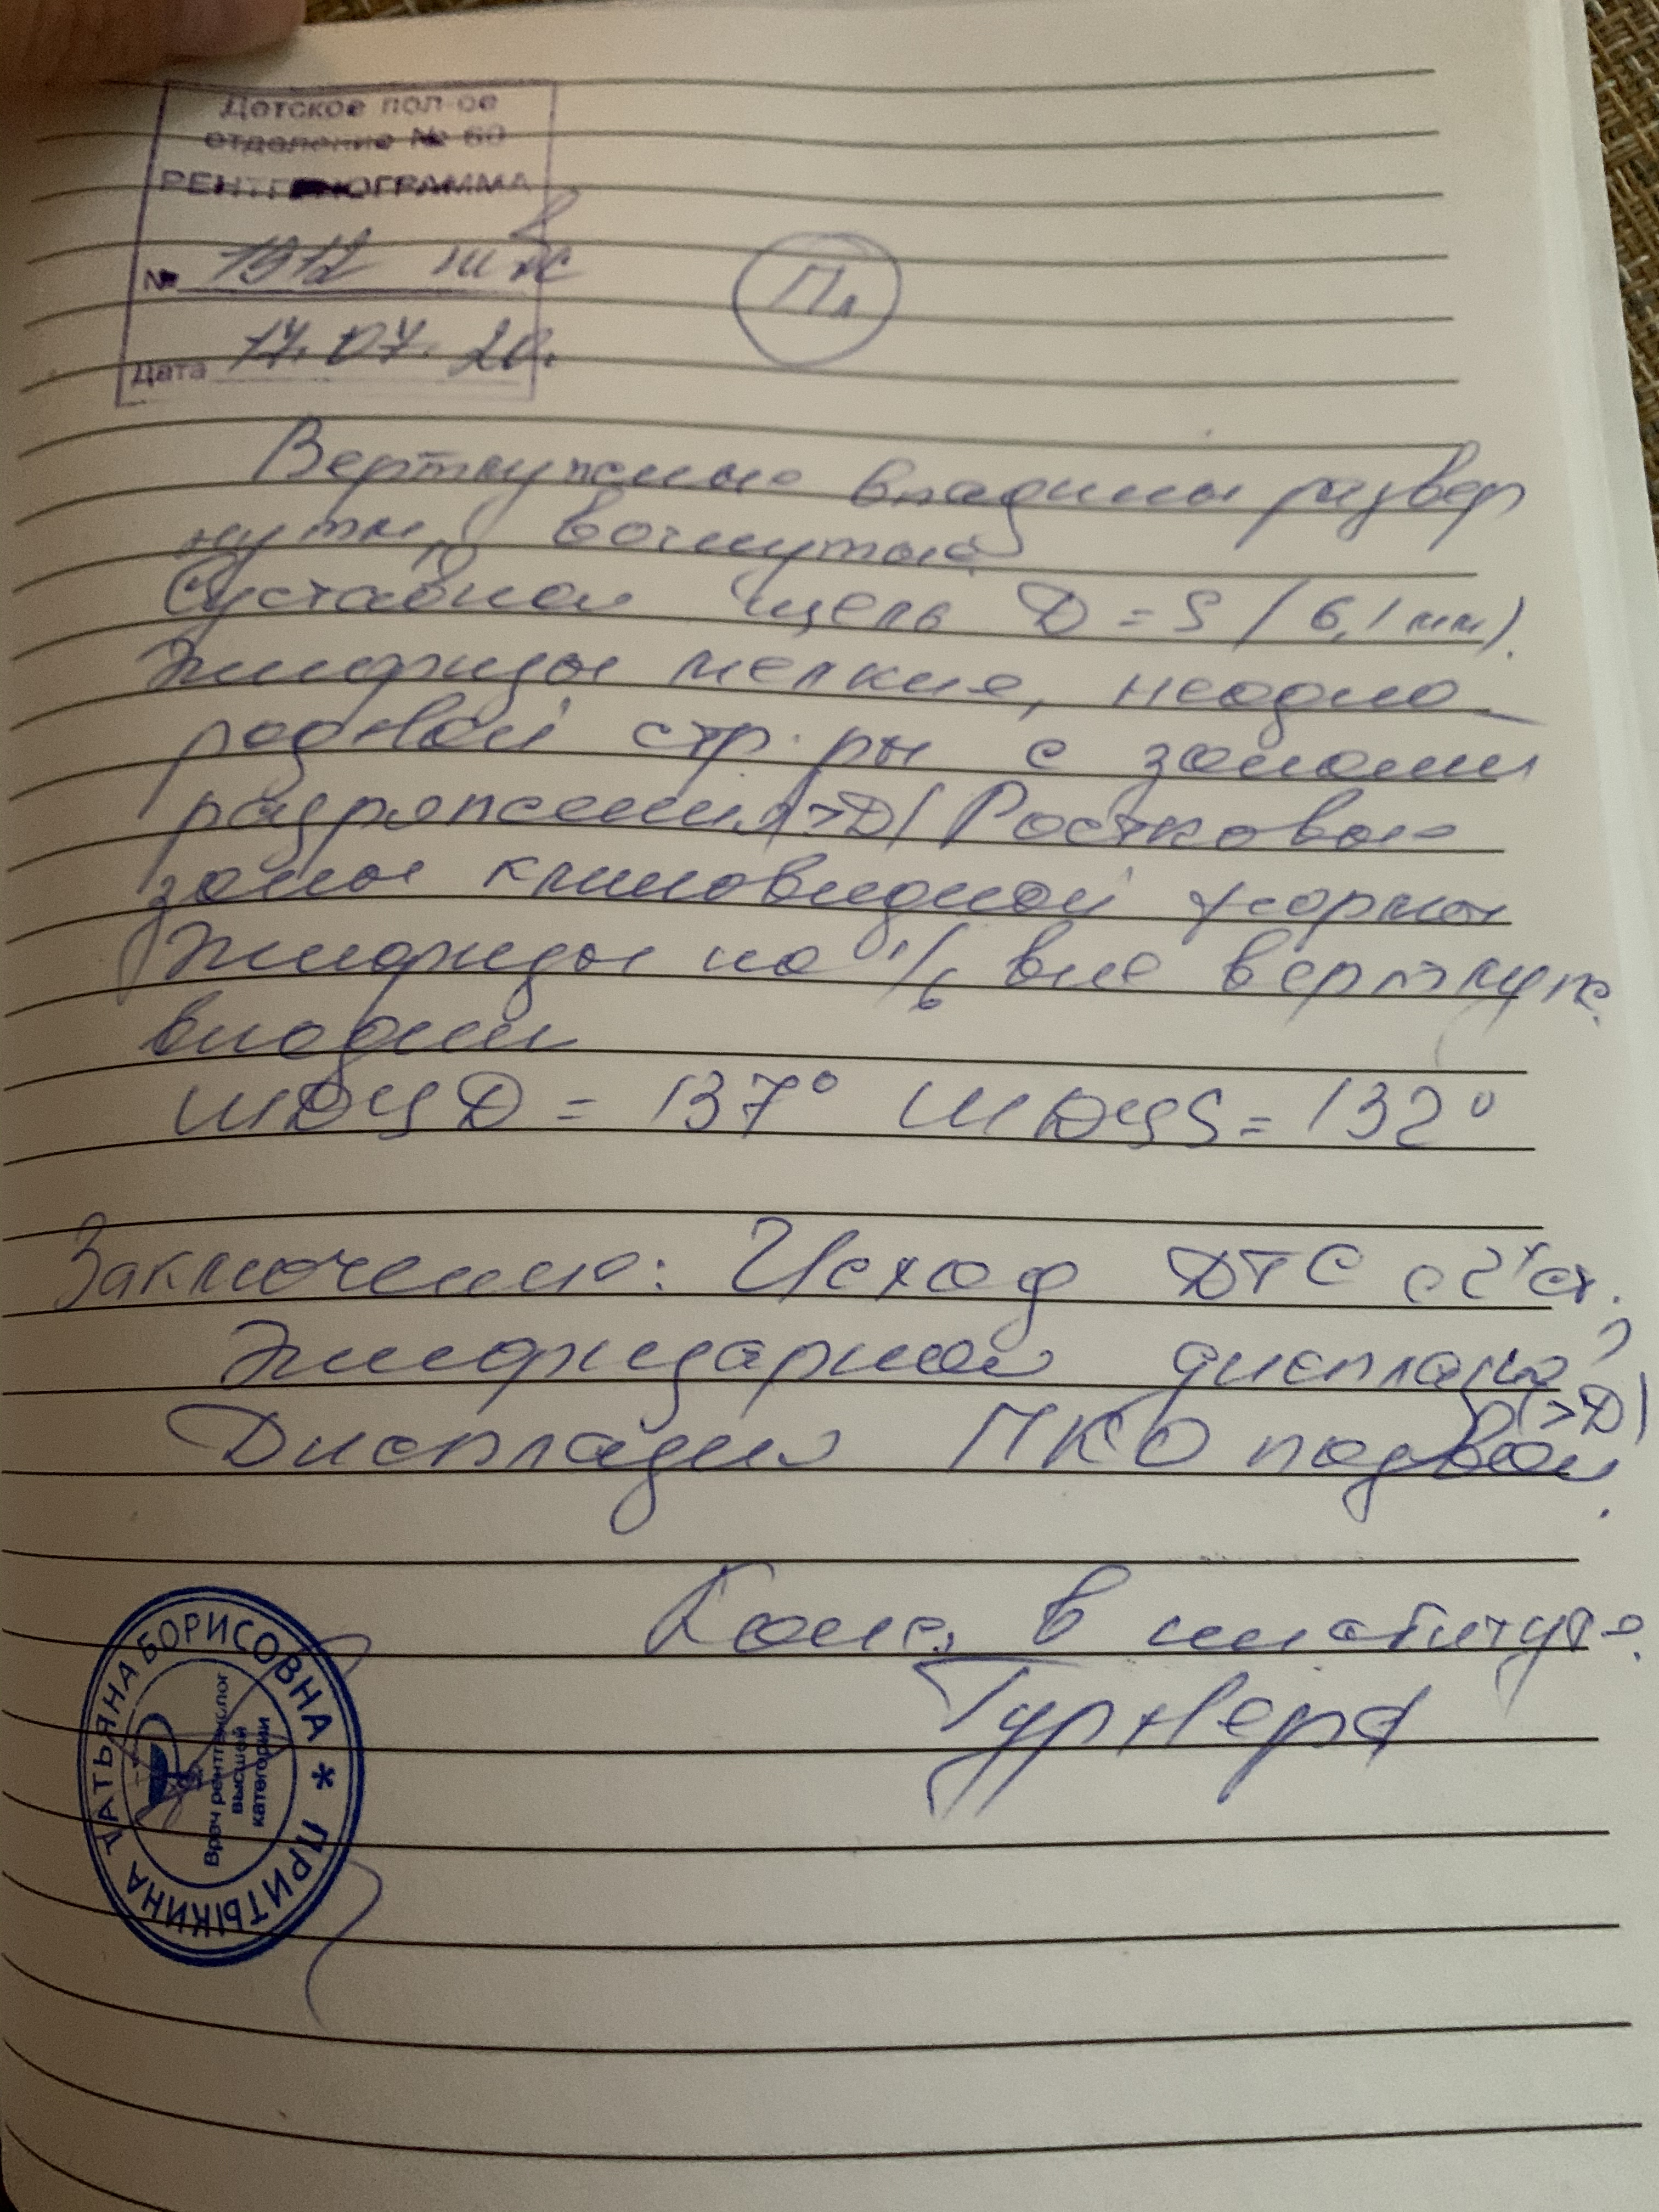 Детское пол-ое
отделение № 60
РЕНТГЕНОГРАММА
№ 1912 тбс
Дата 17.07.20.
Пл
Вертлужные впадины развер
нуты, вогнутые
Суставная щель D = S (6,1 мм).
Эпифизы мелкие, неодно-
родной стр-ры с зонами
разряжения (>D) Ростковые
зоны клиновидной формы
Эпифизы на 1/6 вне вертлуж.
впадин
ШДУ D = 137° ШДУ S = 132°
Заключение: Исход ДТС с 2х ст.
Эпифизарная дисплазия
(>D)
Дисплазия ПКО подвзд
Конс. в институте
Турнера
ПРИТЫКИНА ТАТЬЯНА БОРИСОВНА *
Врач рентгенолог
высшей
категории